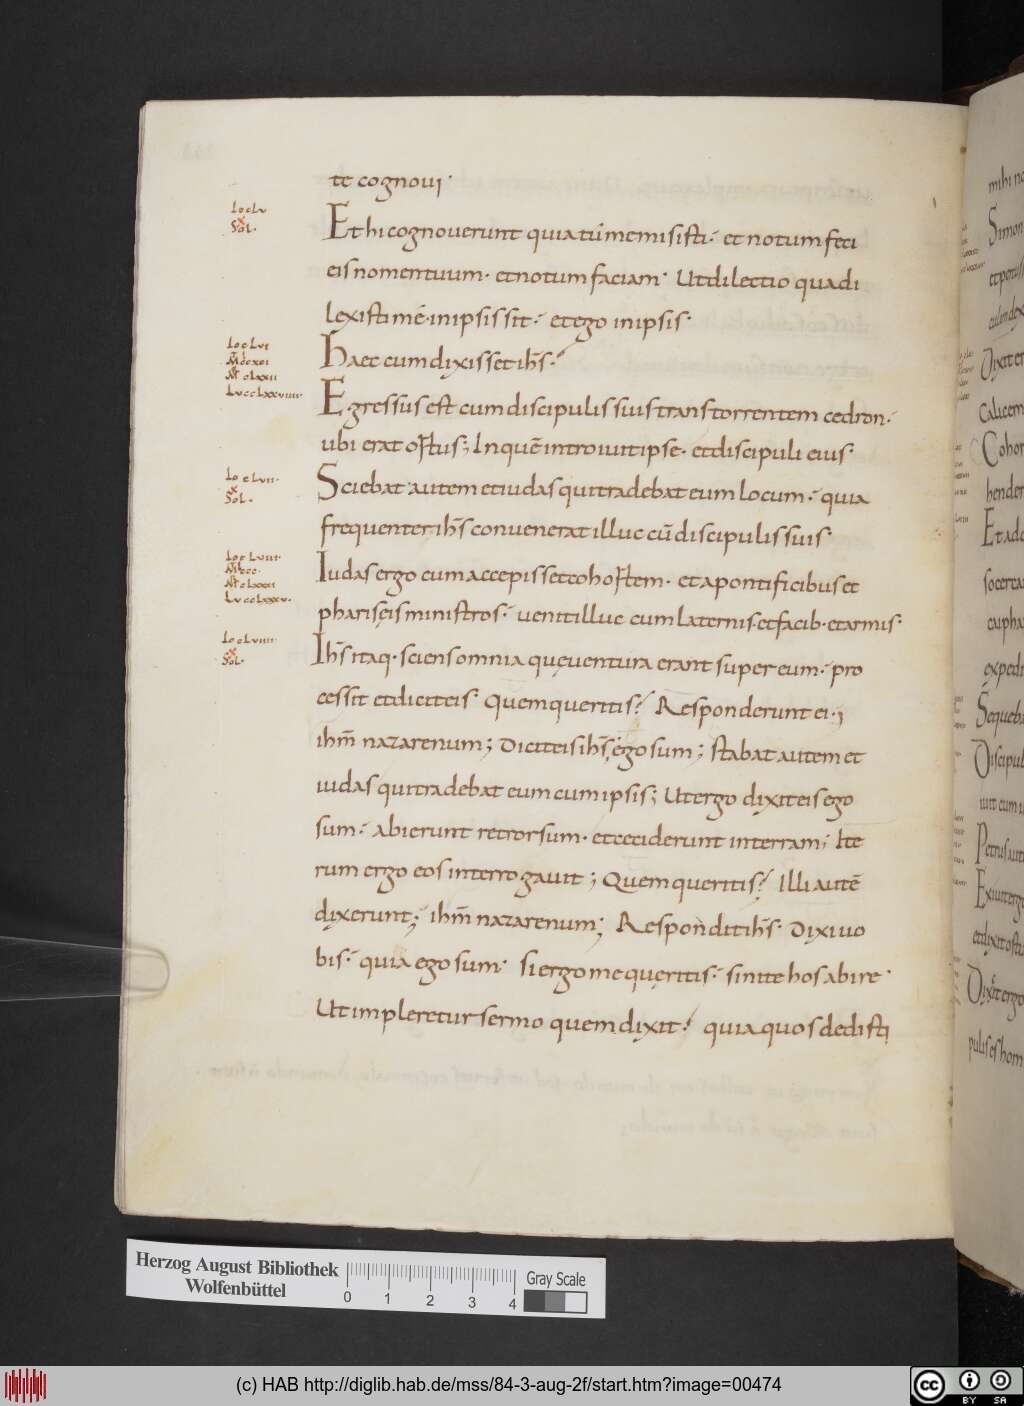 te cognovi·
Io clv
x
Sol·
Et hi cognoverunt quia tu me misisti· et notum feci
eis nomen tuum· et notum faciam· Ut dilectio qua di
lexisti me· in ipsis sit· et ego in ipsis·
Io clvi
Haec cum dixisset ihs·
Egressus est cum discipulis suis trans torrentem cedron·
ubi erat ortus; In quē introivit ipse· et discipuli eius·
Io clvii·
x
Sol·
Sciebat autem et iudas qui tradebat eum locum· quia
frequenter ihs convenerat illuc cū discipulis suis·
Io clviii·
Mt ccc·
Mr clxxxii
Lv cclxxxv·
Iudas ergo cum accepisset cohortem· et a pontificibus et
phariseis ministros· venit illuc cum laternis· et facib· et armis·
Io clviiii·
x
Sol·
Ihs itaq· sciens omnia quę ventura erant super eum· pro
cessit et dicit eis· Quem queritis? Responderunt ei·;
ihm nazarenum; Dicit eis ihs; ego sum; stabat autem et
iudas qui tradebat eum cum ipsis; Ut ergo dixit eis ego
sum· abierunt retrorsum· et ceciderunt in terram; Ite
rum ergo eos interrogavit; Quem queritis? Illi autē
dixerunt; ihm nazarenum; Respondit ihs· Dixi vo
bis· quia ego sum· si ergo me quęritis· sinite hos abire·
Ut impleretur sermo quem dixit· quia quos dedisti
mihi no
Simon
calicem
Cohor
hender
Et add
expedi
Sequeba
Discipul
Petrus aute
Exivit ergo
et dixit osti
Dixit ergo
pulis es hom
Herzog August Bibliothek
Wolfenbüttel
0 1 2 3 4
Gray Scale
(c) HAB http://diglib.hab.de/mss/84-3-aug-2f/start.htm?image=00474
cc BY SA